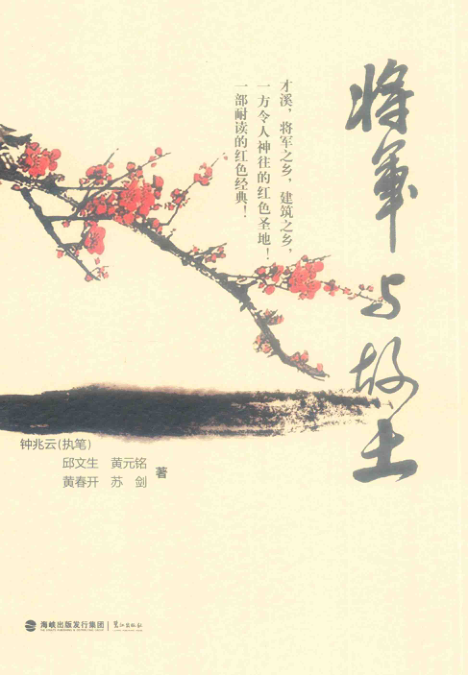 将军与故土
才溪，将军之乡，建筑之乡，
一方令人神往的红色圣地！
一部耐读的红色经典！
钟兆云(执笔)
邱文生 黄元铭
黄春开 苏 剑
著
海峡出版发行集团 | 鹭江出版社